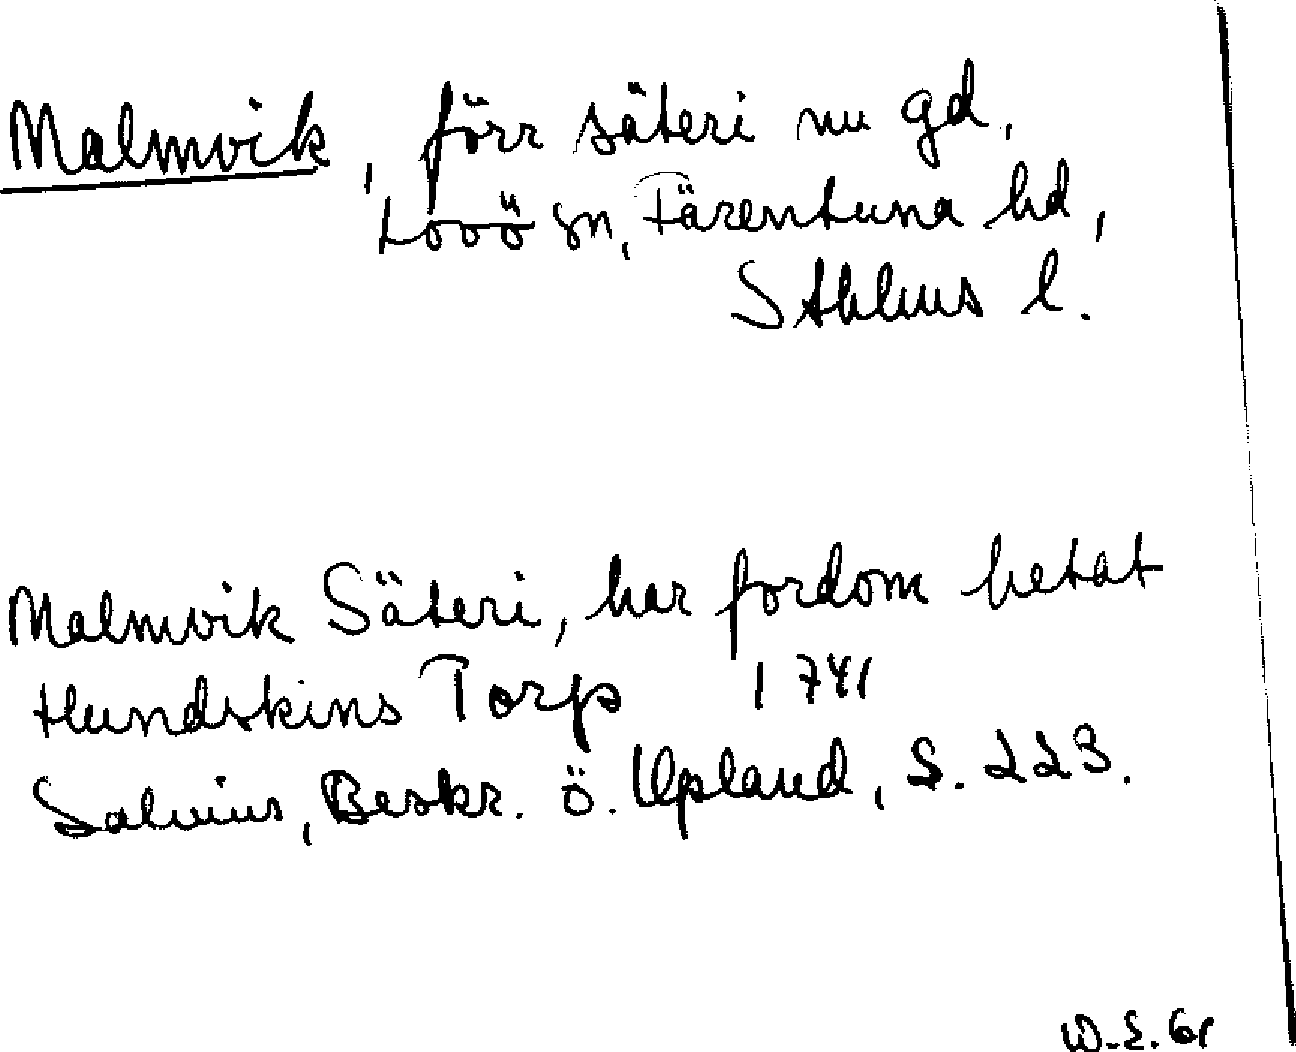 Malmvik, förr säteri nu gd,
Lovö sn, Färentuna hd,
Sthlms l.
Malmvik Säteri, har fordom hetat
Hundskins Torp 1741
Salvius, Beskr. ö. Upland, S. 223.
W.S. 61